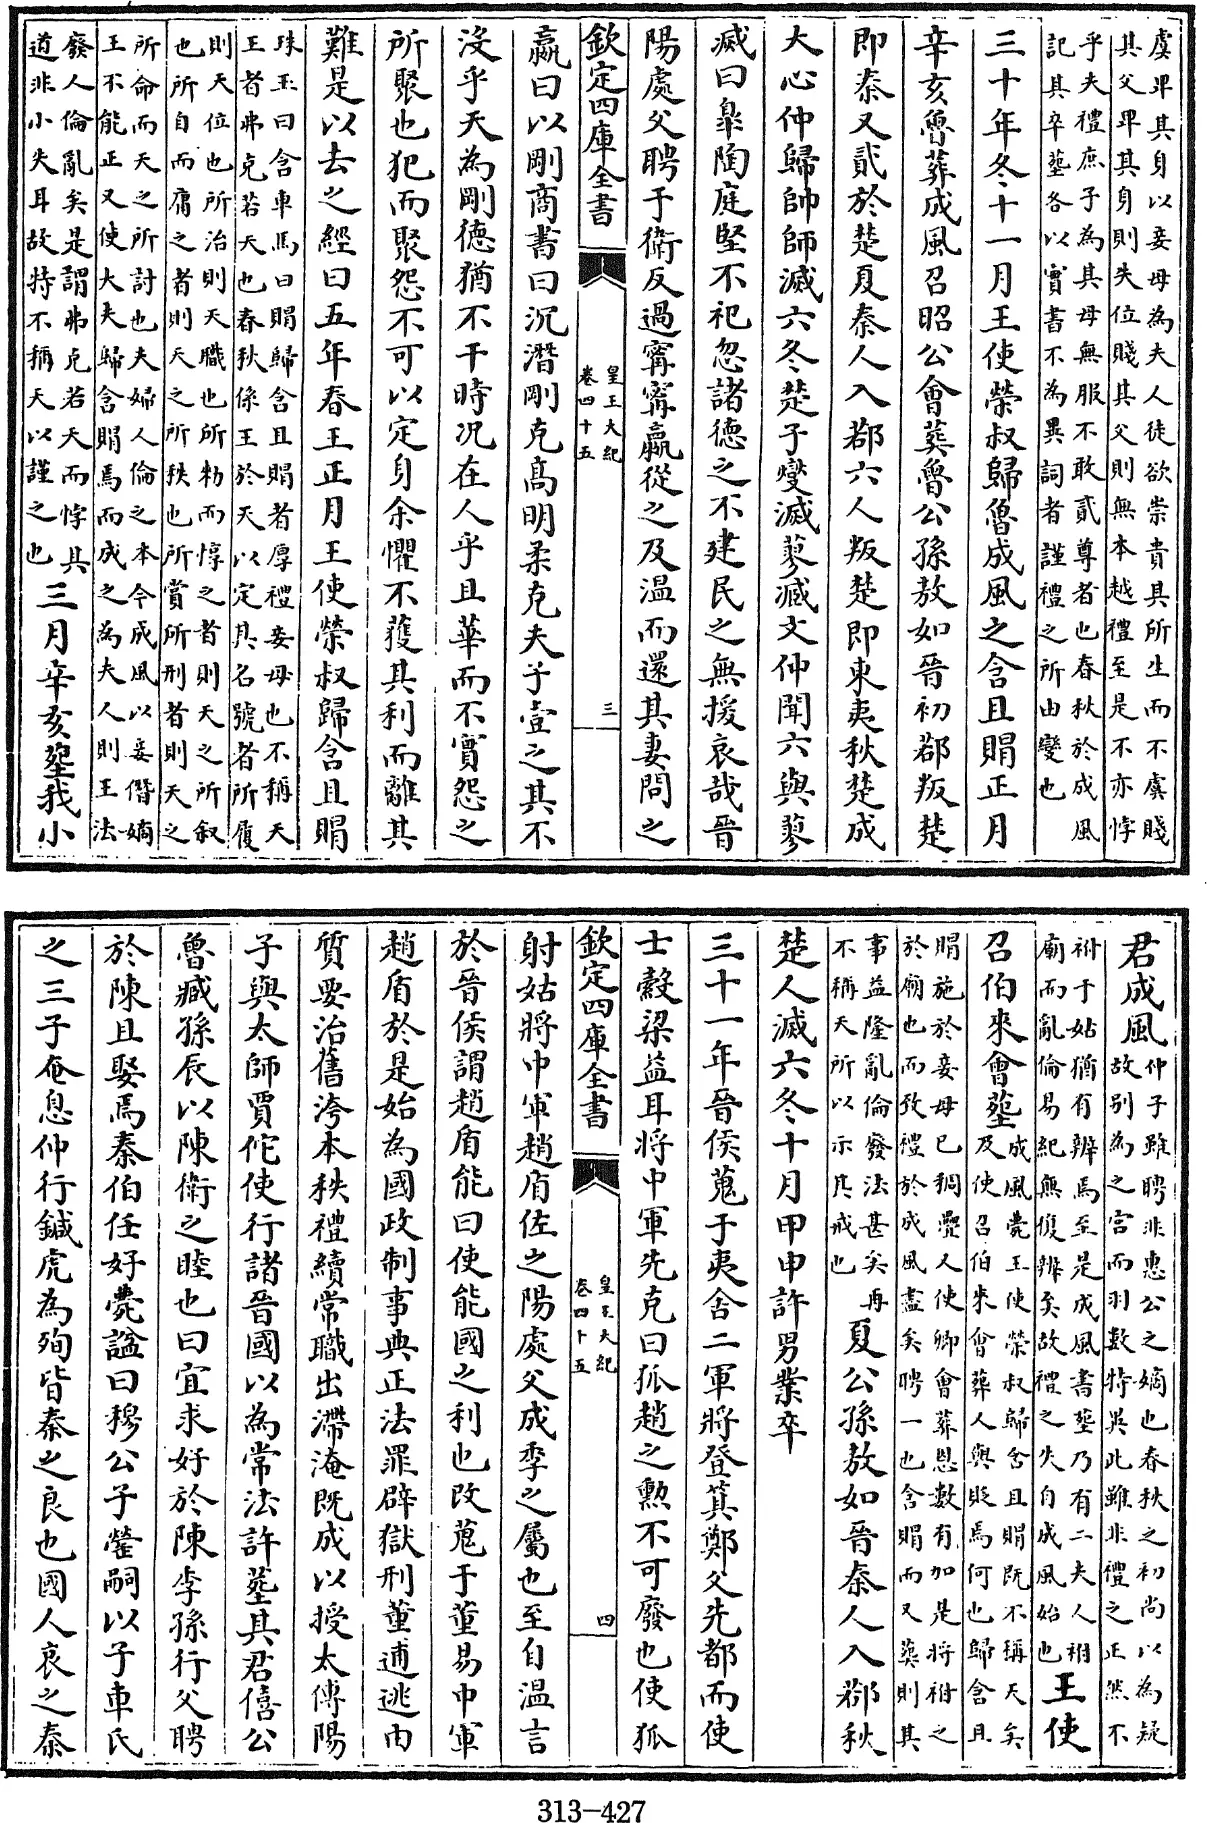 虞卑其身以妾母為夫人徒欲崇貴其所生而不虞賤
其父卑其身則失位賤其父則無本越禮至是不亦悖
乎夫禮庶子為其母無服不敢貳尊者也春秋於成風
記其卒塟各以實書不為異詞者謹禮之所由變也
三十年冬十一月王使榮叔歸魯成風之含且賵正月
辛亥魯葬成風召昭公會葬魯公孫敖如晉初鄀叛楚
即秦又貳於楚夏秦人入鄀六人叛楚即東夷秋楚成
大心仲歸帥師滅六冬楚子燮滅蓼臧文仲聞六與蓼
滅曰臯陶庭堅不祀忽諸德之不建民之無援哀哉晉
陽處父聘于衛反過甯甯嬴從之及温而還其妻問之
欽定四庫全書
皇王大紀
卷四十五
三
嬴曰以剛商書曰沉潛剛克高明柔克夫子壹之其不
沒乎天為剛德猶不干時况在人乎且華而不實怨之
所聚也犯而聚怨不可以定身余懼不獲其利而離其
難是以去之經曰五年春王正月王使榮叔歸含且賵
珠玉曰含車馬曰賵歸含且賵者厚禮妾母也不稱天
王者弗克若天也春秋係王於天以定其名號者所履
則天位也所治則天職也所勑而惇之者則天之所叙
也所自而庸之者則天之所秩也所賞所刑者則天之
所命而天之所討也夫婦人倫之本今成風以妾僭嫡
王不能正又使大夫歸含賵焉而成之為夫人則王法
廢人倫亂矣是謂弗克若天而悖其
道非小失耳故特不稱天以謹之也
三月辛亥塟我小
君成風
仲子雖聘非惠公之嫡也春秋之初尚以為疑
故别為之宫而羽數特異此雖非禮之正然不
祔于姑猶有辨焉至是成風書塟乃有二夫人祔
廟而亂倫易紀無復辨矣故禮之失自成風始也
王使
召伯來會塟
成風薨王使榮叔歸含且賵既不稱天矣
及使召伯來會葬人與貶焉何也歸含且
賵施於妾母已稠疊人使卿會葬恩數有加是將祔之
於廟也而致禮於成風盡矣聘一也含賵而又葬則其
事益隆亂倫廢法甚矣再
不稱天所以示其戒也
夏公孫敖如晉秦人入鄀秋
楚人滅六冬十月甲申許男業卒
三十一年晉侯蒐于夷舍二軍將登箕鄭父先都而使
士縠梁益耳將中軍先克曰狐趙之勲不可廢也使狐
欽定四庫全書
皇王大紀
卷四十五
四
射姑將中軍趙盾佐之陽處父成季之屬也至自温言
於晉侯謂趙盾能曰使能國之利也改蒐于董易中軍
趙盾於是始為國政制事典正法罪辟獄刑董逋逃由
質要治舊洿本秩禮續常職出滯淹既成以授太傅陽
子與太師賈佗使行諸晉國以為常法許塟其君僖公
魯臧孫辰以陳衛之睦也曰宜求好於陳季孫行父聘
於陳且娶焉秦伯任好薨諡曰穆公子罃嗣以子車氏
之三子奄息仲行鍼虎為殉皆秦之良也國人哀之秦
313-427